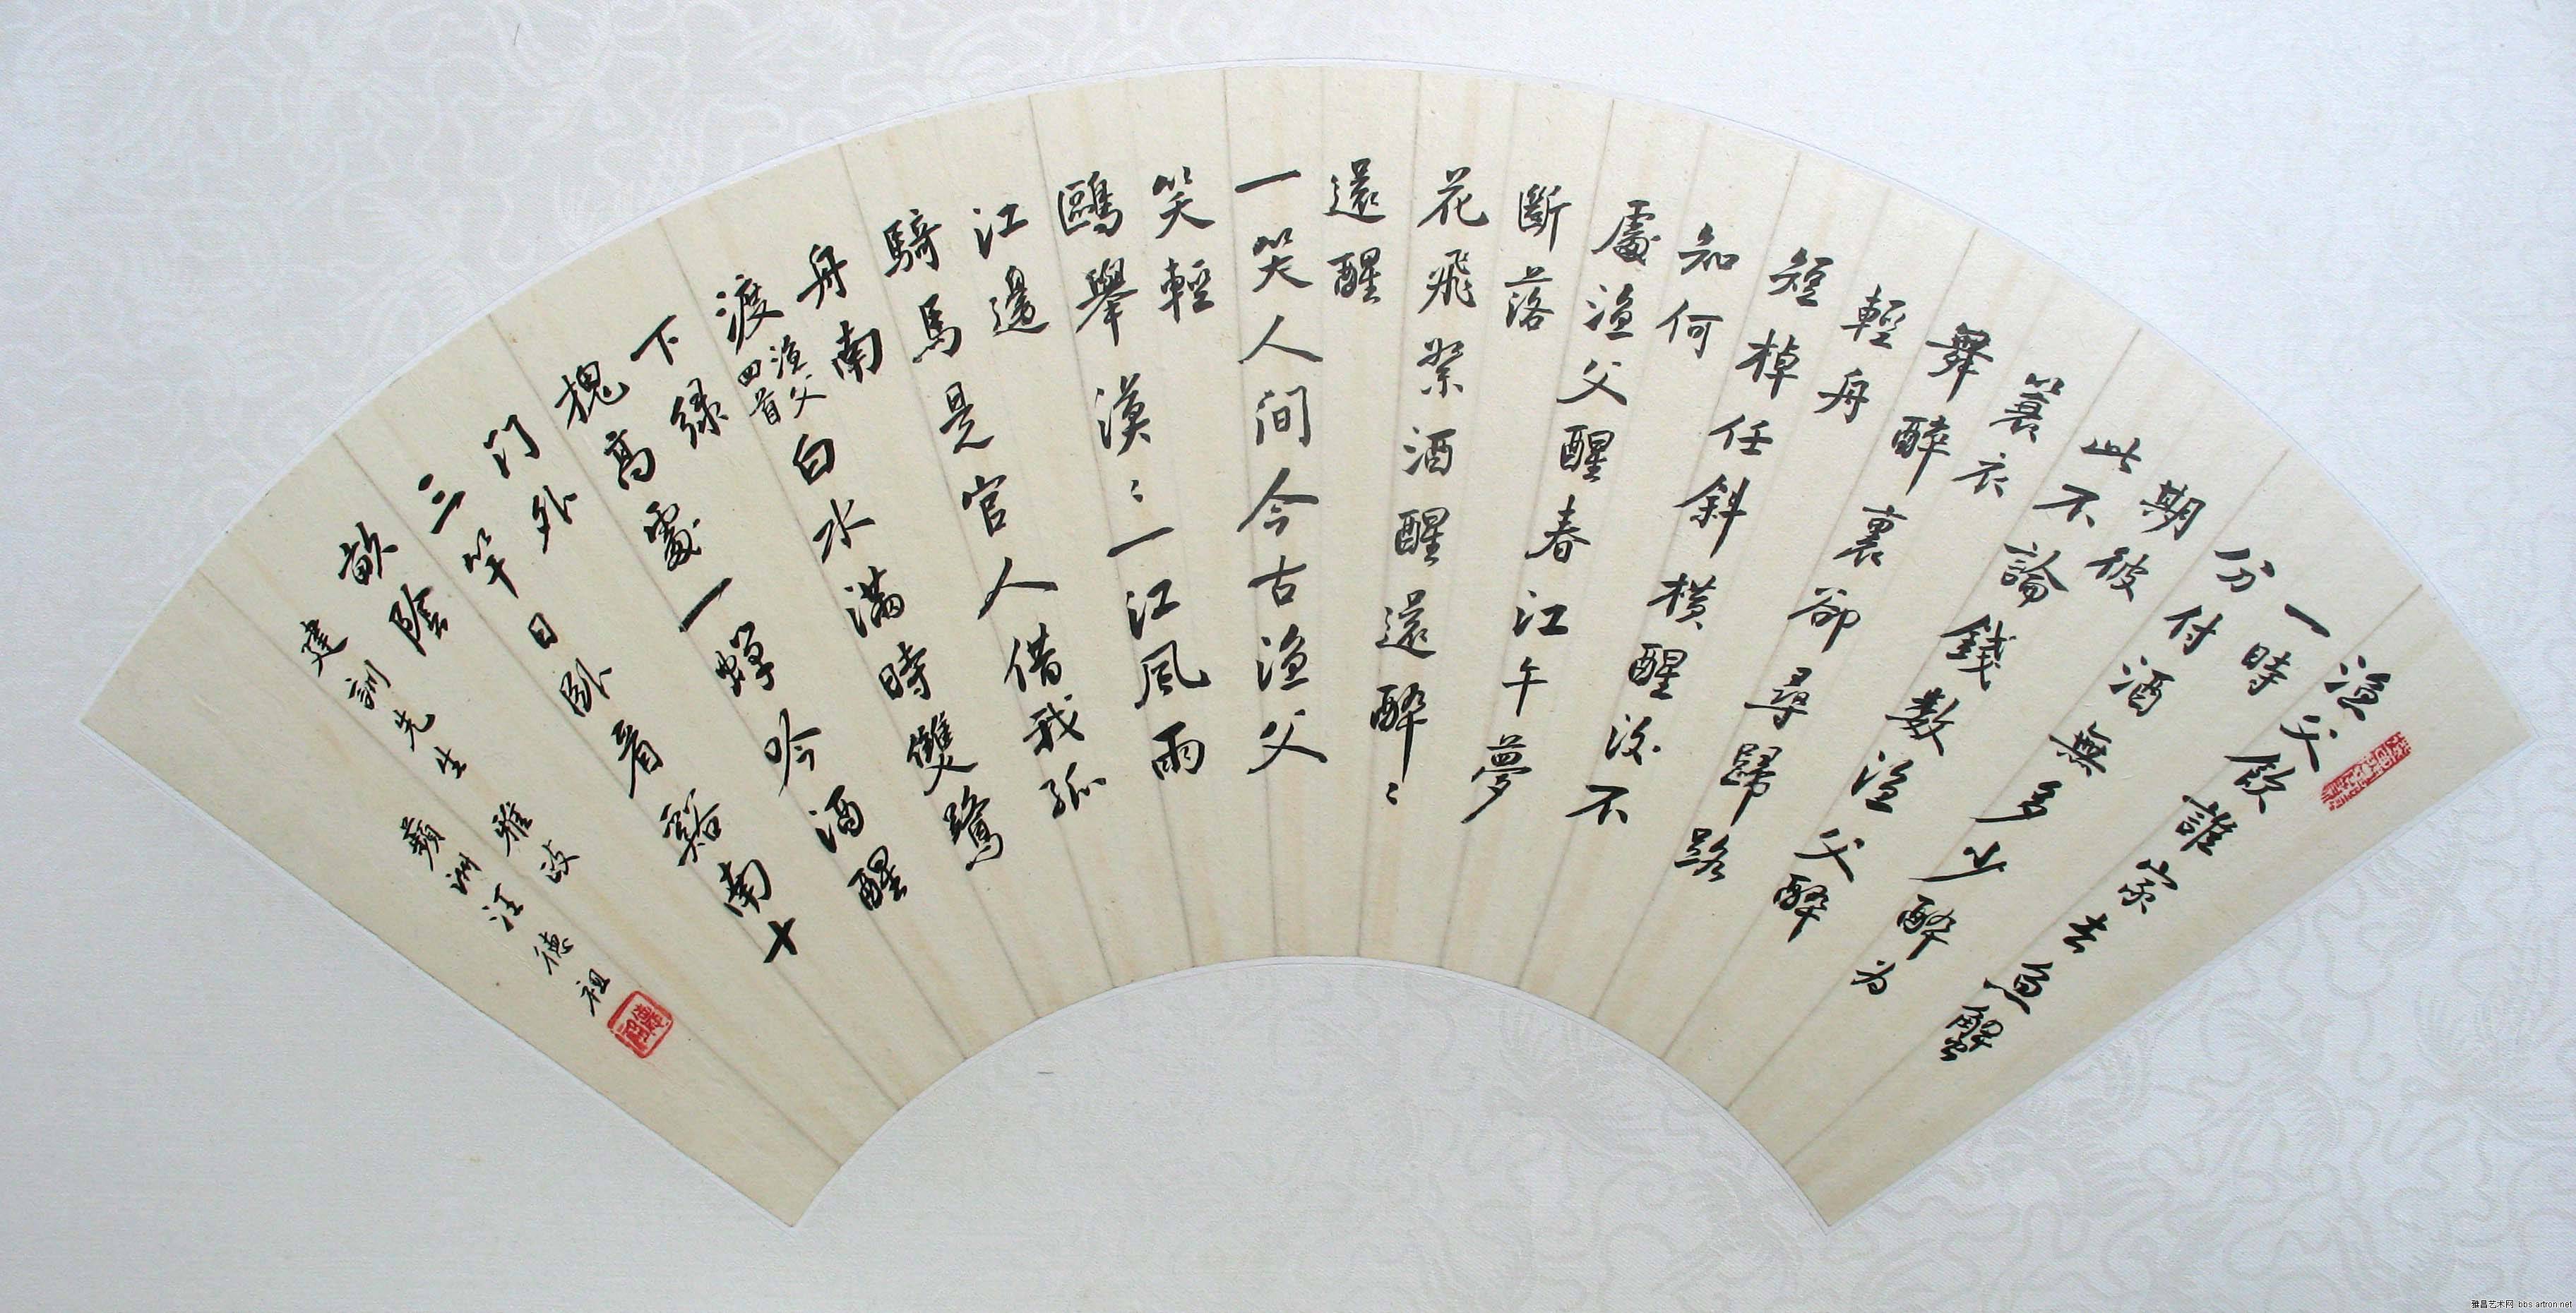 漁父飲誰家去魚蟹
一時
分付酒無多少醉為
期彼
此不論錢数漁父醉
蓑衣
舞醉裏卻尋歸路
輕舟
短棹任斜橫醒後不
知何
處漁父醒春江午夢
斷落
花飛絮酒醒還醉〻
還醒
一笑人间今古漁父
笑輕
鷗舉漠〻一江風雨
江邊
騎馬是官人借我孤
舟南
渡
漁父
四首
白水滿時雙鷺
下綠
槐高處一蟬吟酒醒
门外
三竿日臥看谿南十
畝陰
建訓先生 雅政
蘋洲汪德祖
雅昌艺术网 bbs.artron.net